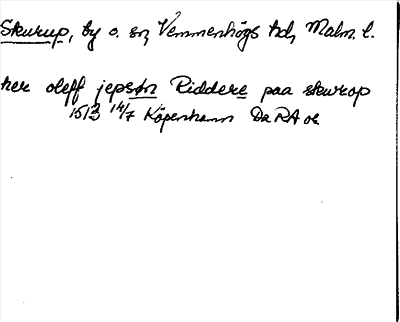 Skurup, by o. sn, Vemmenhögs hd, Malm. l.
her oleff jepssn Riddere paa skurop
1513 14/7 Köpenhamn Da RA or